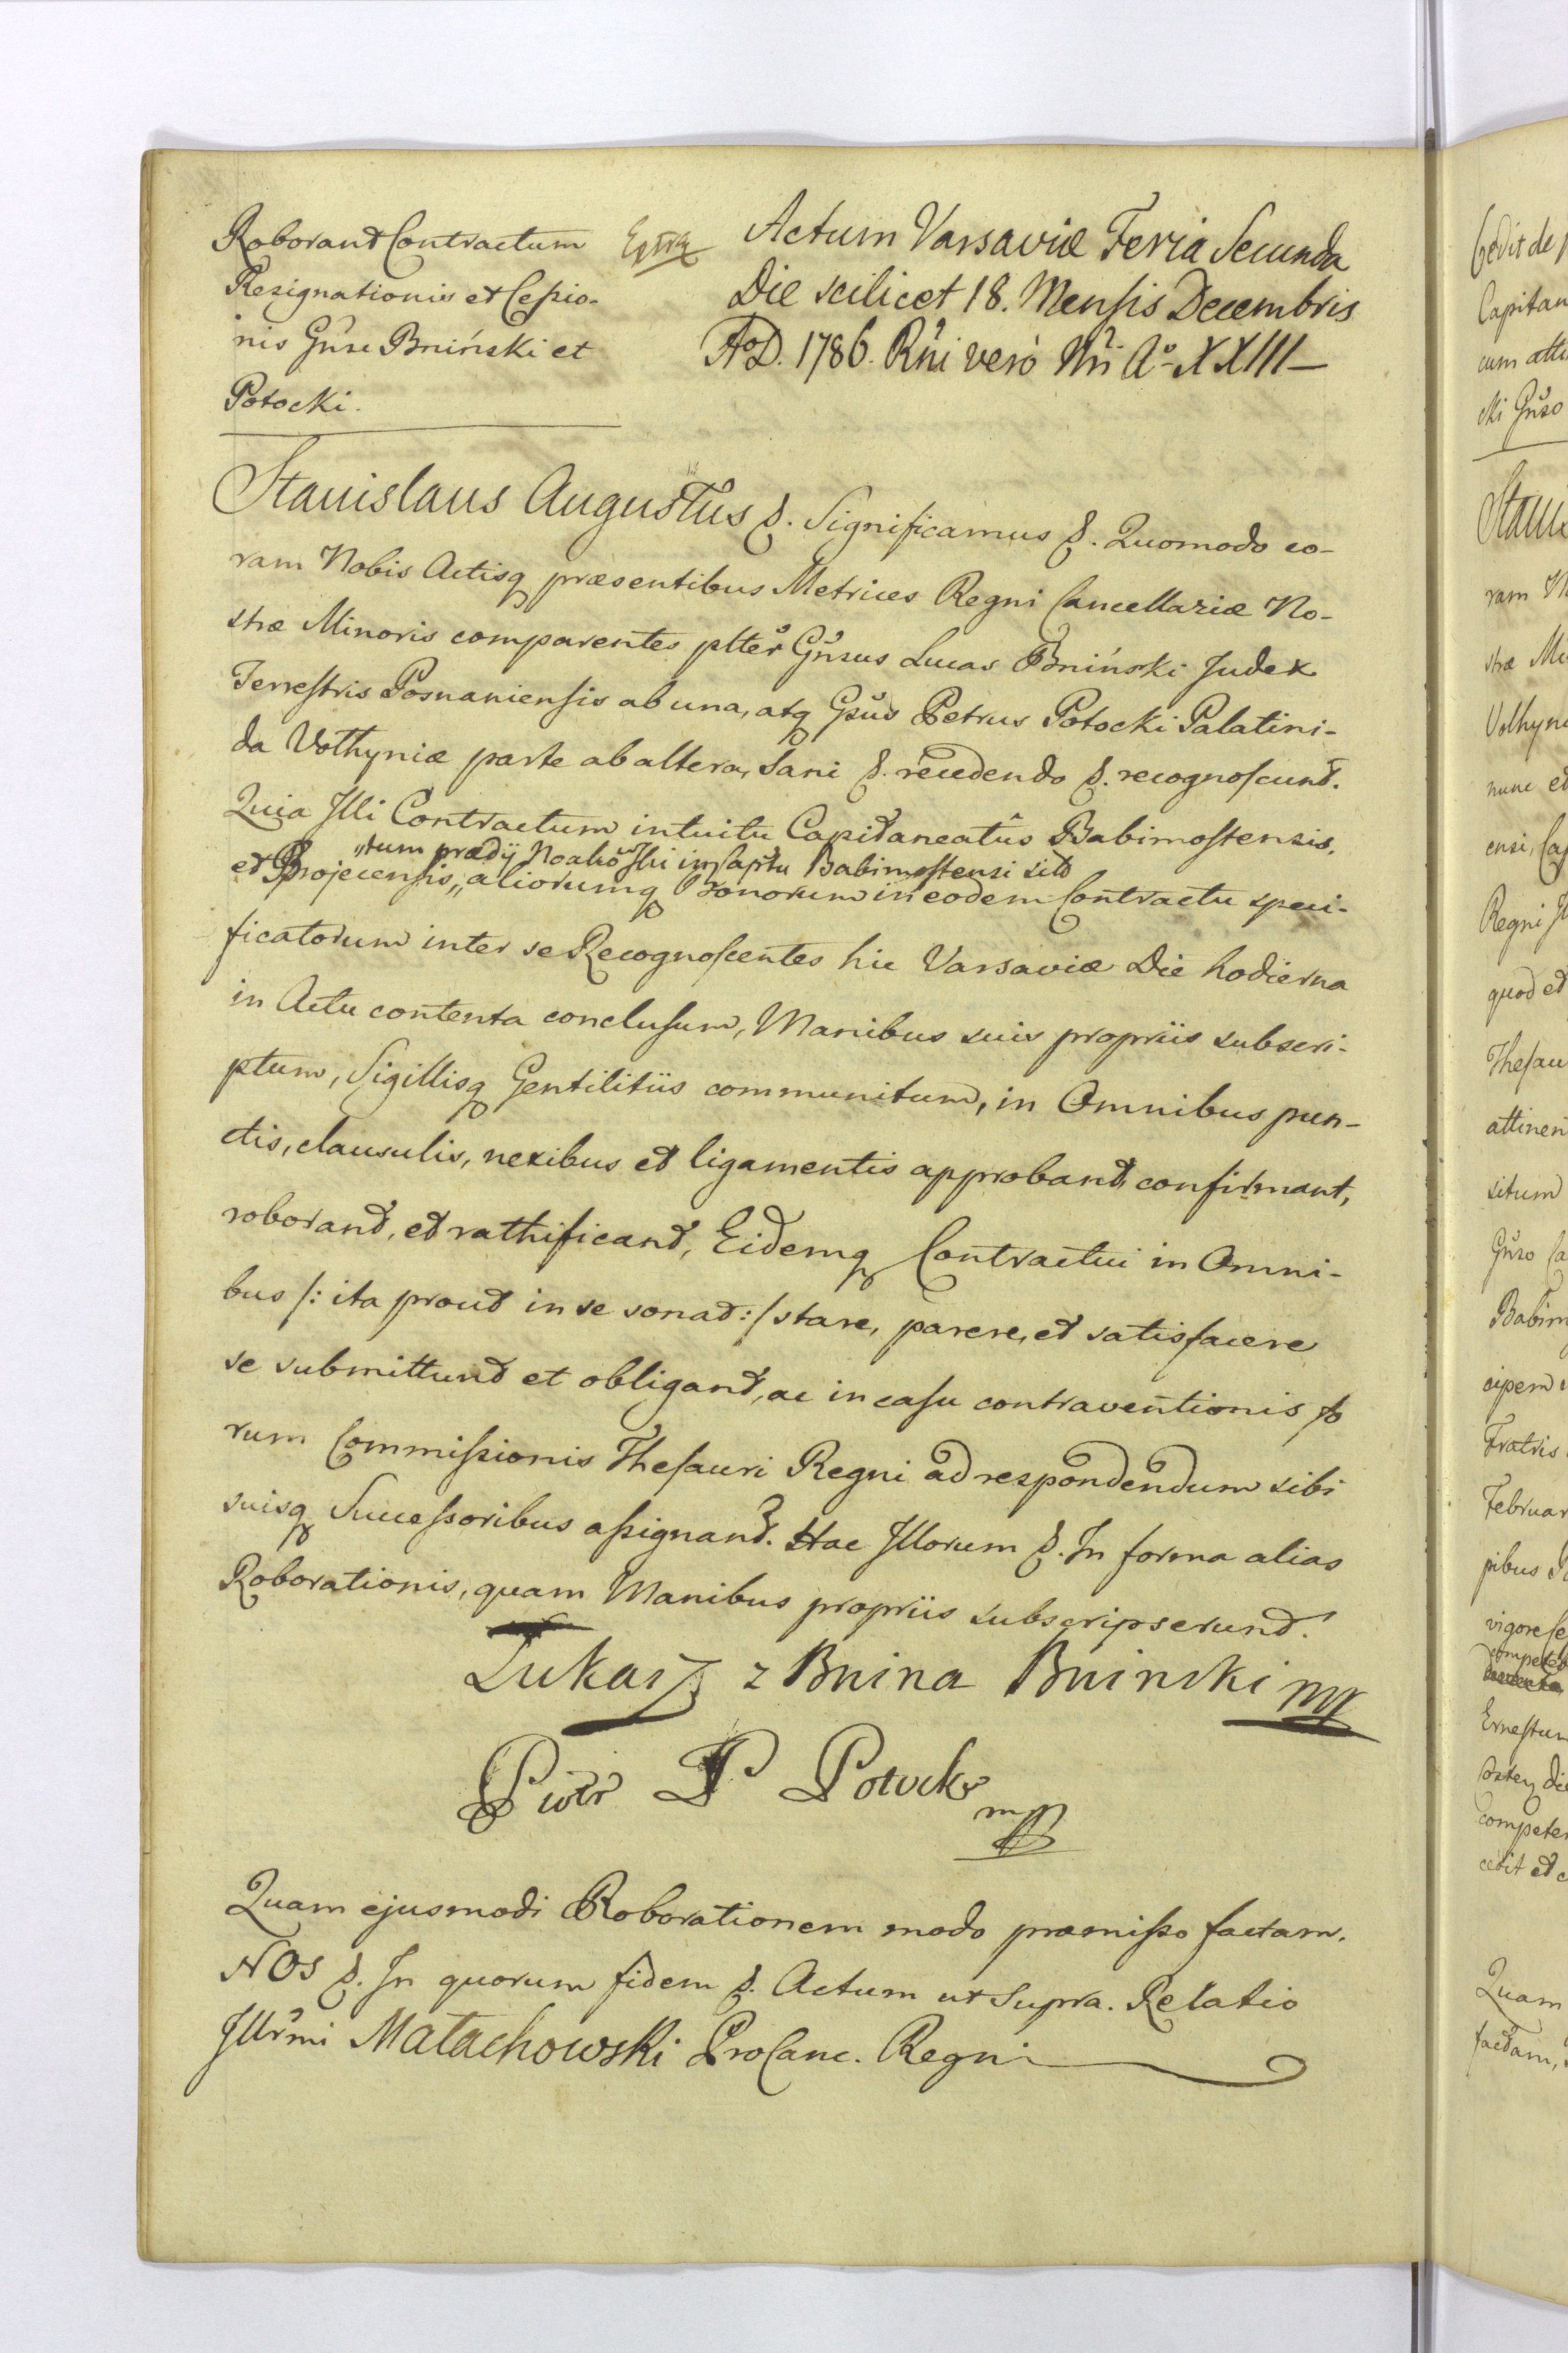 Roborant Contractum
Resignationis et Cessio-
nis Gnse Bniński et
Potocki.
Actum Varsaviæ Feria Secunda
Die scilicet 18. Mensis Decembris
AoD. 1786. Rni vero Nri Ao XXIII
Stanislaus Augustus &. Significamus &. Quomodo co-
ram Nobis Actisq præsentibus Metrices Regni Cancellariæ No-
stræ Minoris comparentes pltter Gnsus Lucas Bniński Judex
Terrestris Posnaniensis ab una, atq Gsus Petrus Potocki Palatini-
da Volhyniæ parte ab altera, Sani &. recedendo &. recognoscunt.
Quia Illi Contractum intuitu Capitaneatûs Babimostensis.
„tum prædij in Captu Babimostensi sit
et Brojecensis,, aliorumq Bonorum in eodem Contractu speci-
ficatorum inter se Recognoscentes hic Varsaviæ Die hodierna
in Actu contenta conclusum, Manibus suis propriis subscri-
ptum, Sigillisq Gentilitiis communitum, in Omnibus pun-
ctis, clausulis, nexibus et ligamentis approbant, confirmant,
roborant, et rathificant, Eidemq Contractui in Omni-
bus /: ita prout in se sonat :/ stare, parere, et satisfacere
se submittunt et obligant, ac in casu contraventionis fo
rum Commissionis Thesauri Regni ad respondendum sibi
suisq Successoribus assignant. Hac Illorum &. In forma alias
Roborationis, quam Manibus propriis subscripserunt.
Łukasz z Bnina Bninski mp
Piotr P Potocki
mpp
Quam ejusmodi Roborationem modo præmisso factam.
NOS &. In quorum fidem &. Actum ut supra. Relatio
Illrmi Małachowski ProCanc. Regni